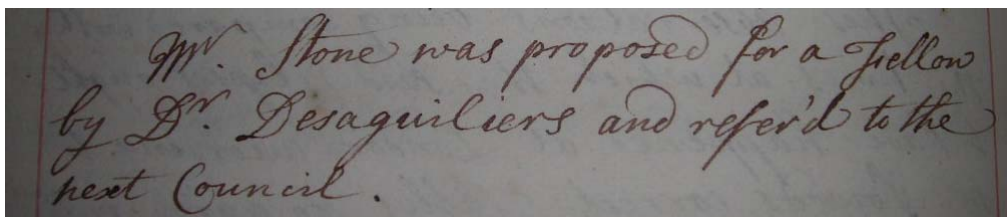 Mr. Stone was proposed for a Fellow
by Dr. Desaguiliers and refer'd to the
next Council.